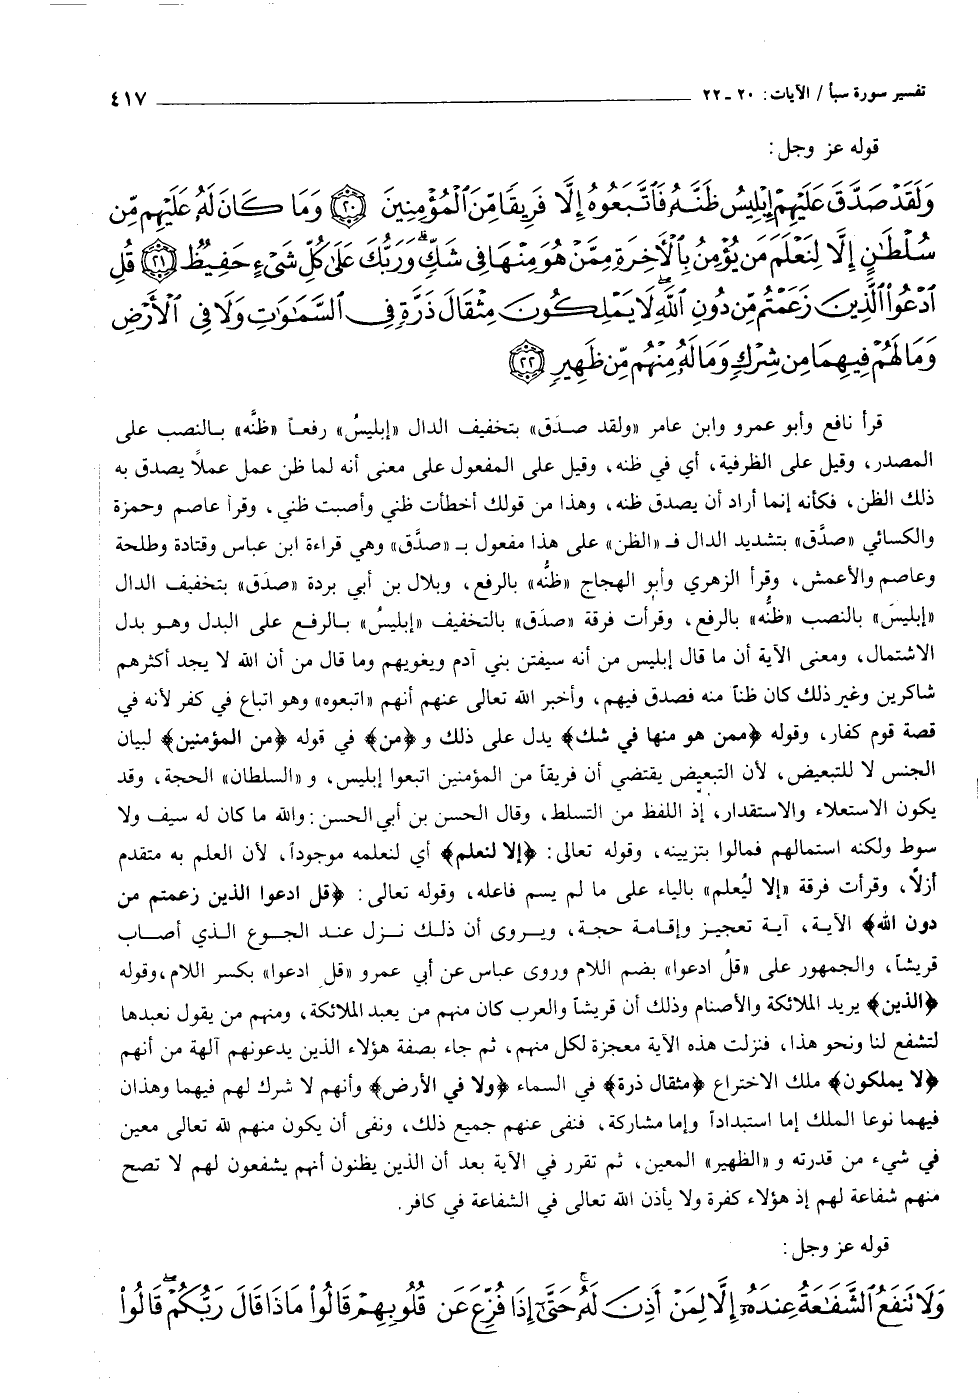 تفسير سورة سبأ / الآيات: ٢٠ ـ ٢٢ ٤١٧
قوله عز وجل:
وَلَقَدْ صَدَّقَ عَلَيْهِمْ إِبْلِيسُ ظَنَّهُ فَاتَّبَعُوهُ إِلَّا فَرِيقًا مِّنَ الْمُؤْمِنِينَ ﴿٢٠﴾ وَمَا كَانَ لَهُ عَلَيْهِم مِّن
سُلْطَٰنٍ إِلَّا لِنَعْلَمَ مَن يُؤْمِنُ بِالْآخِرَةِ مِمَّنْ هُوَ مِنْهَا فِي شَكٍّ ۗ وَرَبُّكَ عَلَىٰ كُلِّ شَيْءٍ حَفِيظٌ ﴿٢١﴾ قُلِ
ادْعُوا الَّذِينَ زَعَمْتُم مِّن دُونِ اللَّهِ ۖ لَا يَمْلِكُونَ مِثْقَالَ ذَرَّةٍ فِي السَّمَٰوَٰتِ وَلَا فِي الْأَرْضِ
وَمَا لَهُمْ فِيهِمَا مِن شِرْكٍ وَمَا لَهُ مِنْهُم مِّن ظَهِيرٍ ﴿٢٢﴾
قرأ نافع وأبو عمرو وابن عامر «ولقد صدَق» بتخفيف الدال «إبليسُ» رفعاً «ظنَّه» بالنصب على
المصدر، وقيل على الظرفية، أي في ظنه، وقيل على المفعول على معنى أنه لما ظن عمل عملاً يصدق به
ذلك الظن، فكأنه إنما أراد أن يصدق ظنه، وهذا من قولك أخطأت ظني وأصبت ظني، وقرأ عاصم وحمزة
والكسائي «صدَّق» بتشديد الدال فـ «الظن» على هذا مفعول بـ «صدَّق» وهي قراءة ابن عباس وقتادة وطلحة
وعاصم والأعمش، وقرأ الزهري وأبو الهجاج «ظنُّه» بالرفع، وبلال بن أبي بردة «صدَق» بتخفيف الدال
«إبليسَ» بالنصب «ظنُّه» بالرفع، وقرأت فرقة «صدَق» بالتخفيف «إبليسُ» بالرفع على البدل وهو بدل
الاشتمال، ومعنى الآية أن ما قال إبليس من أنه سيفتن بني آدم ويغويهم وما قال من أن الله لا يجد أكثرهم
شاكرين وغير ذلك كان ظناً منه فصدق فيهم، وأخبر الله تعالى عنهم أنهم «اتبعوه» وهو اتباع في كفر لأنه في
قصة قوم كفار، وقوله ﴿ممن هو منها في شك﴾ يدل على ذلك و﴿من﴾ في قوله ﴿من المؤمنين﴾ لبيان
الجنس لا للتبعيض، لأن التبعيض يقتضي أن فريقاً من المؤمنين اتبعوا إبليس، و«السلطان» الحجة، وقد
يكون الاستعلاء والاستقدار، إذ اللفظ من التسلط، وقال الحسن بن أبي الحسن: والله ما كان له سيف ولا
سوط ولكنه استمالهم فمالوا بتزيينه، وقوله تعالى: ﴿إلا لنعلم﴾ أي لنعلمه موجوداً، لأن العلم به متقدم
أزلاً، وقرأت فرقة «إلا ليُعلم» بالياء على ما لم يسم فاعله، وقوله تعالى: ﴿قل ادعوا الذين زعمتم من
دون الله﴾ الآية، آية تعجيز وإقامة حجة، ويروى أن ذلك نزل عند الجوع الذي أصاب
قريشاً، والجمهور على «قلُ ادعوا» بضم اللام وروى عباس عن أبي عمرو «قلِ ادعوا» بكسر اللام، وقوله
﴿الذين﴾ يريد الملائكة والأصنام وذلك أن قريشاً والعرب كان منهم من يعبد الملائكة، ومنهم من يقول نعبدها
لتشفع لنا ونحو هذا، فنزلت هذه الآية معجزة لكل منهم، ثم جاء بصفة هؤلاء الذين يدعونهم آلهة من أنهم
﴿لا يملكون﴾ ملك الاختراع ﴿مثقال ذرة﴾ في السماء ﴿ولا في الأرض﴾ وأنهم لا شرك لهم فيهما وهذان
فيهما نوعا الملك إما استبداداً وإما مشاركة، فنفى عنهم جميع ذلك، ونفى أن يكون منهم لله تعالى معين
في شيء من قدرته و«الظهير» المعين، ثم تقرر في الآية بعد أن الذين يظنون أنهم يشفعون لهم لا تصح
منهم شفاعة لهم إذ هؤلاء كفرة ولا يأذن الله تعالى في الشفاعة في كافر.
قوله عز وجل:
وَلَا تَنفَعُ الشَّفَٰعَةُ عِندَهُ إِلَّا لِمَنْ أَذِنَ لَهُ ۚ حَتَّىٰ إِذَا فُزِّعَ عَن قُلُوبِهِمْ قَالُوا مَاذَا قَالَ رَبُّكُمْ ۖ قَالُوا